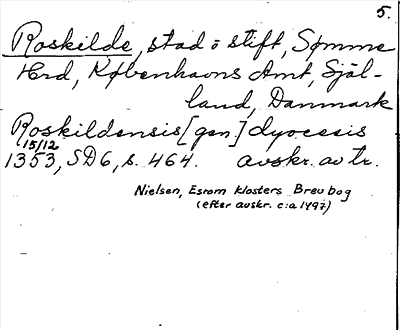 5.
Roskilde, stad o stift, Sømme
Hrd, Københavns Amt, Själ-
land, Danmark
Roskildensis [gen.] dyocesis
15/12
1353, SD6, s. 464. avskr. av tr.
Nielsen, Esrom Klosters Brevbog
(efter avskr. c:a 1497)